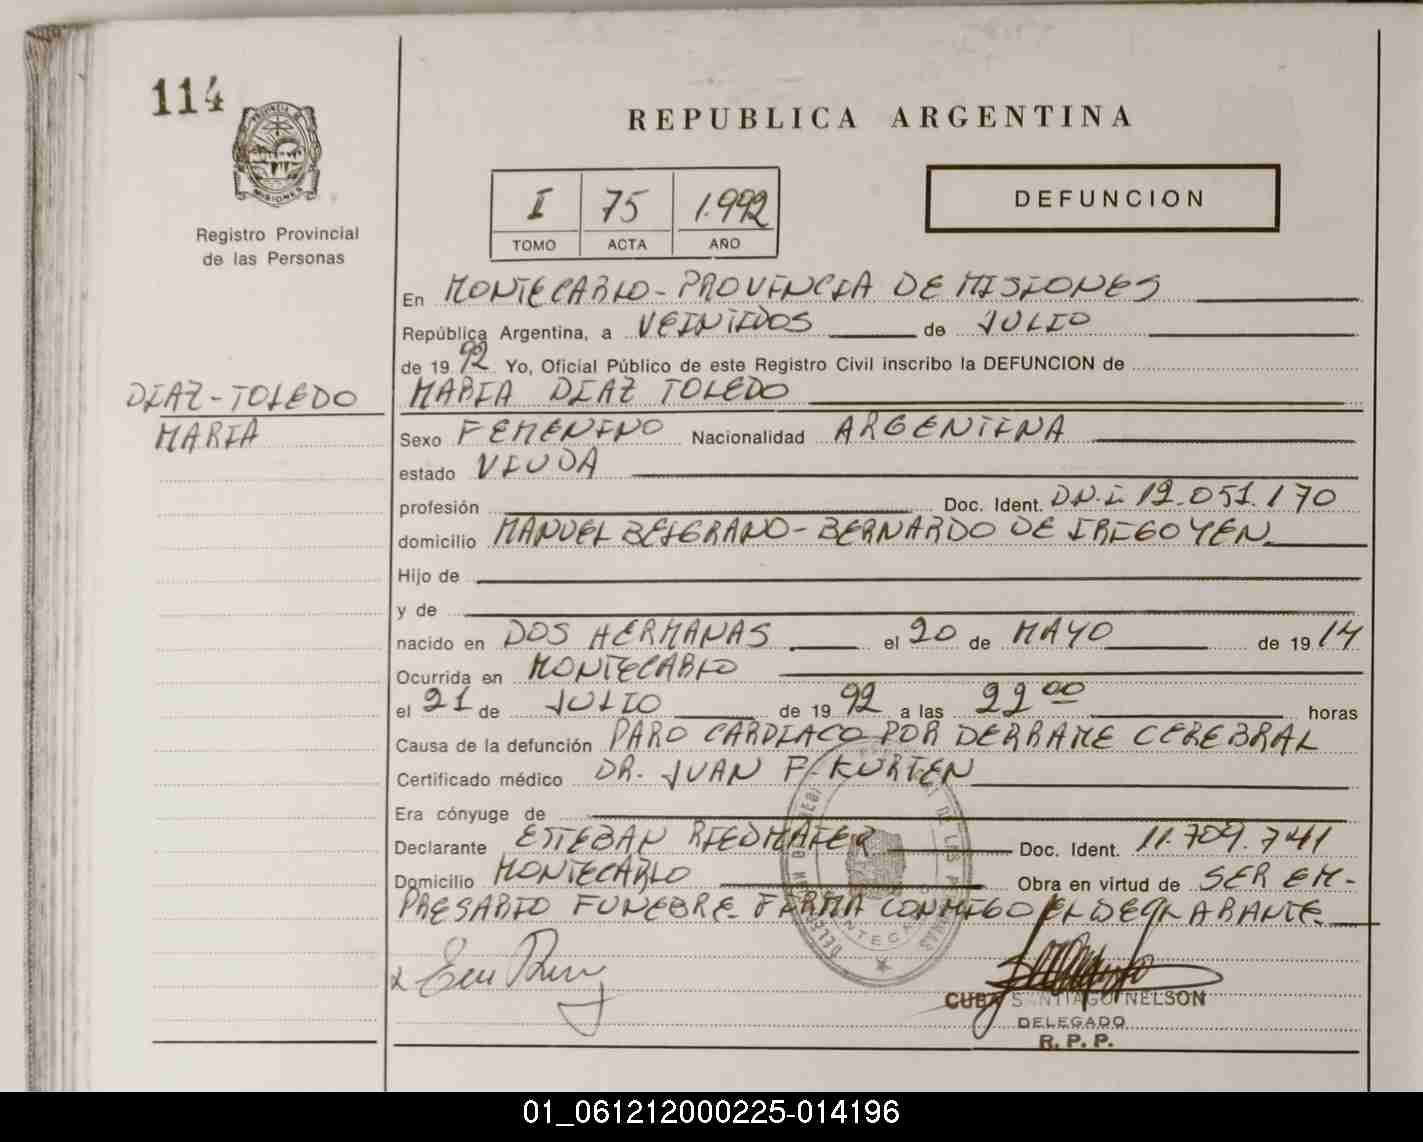 114
PROVINCIA DE
MISIONES
Registro Provincial
de las Personas
REPUBLICA ARGENTINA
I 75 1.992
TOMO ACTA AÑO
DEFUNCION
En MONTECARLO - PROVINCIA DE MISIONES
República Argentina, a VEINTIDOS de JULIO
de 19 92 Yo, Oficial Público de este Registro Civil inscribo la DEFUNCION de
DIAZ - TOLEDO
MARIA DIAZ TOLEDO
MARIA
Sexo FEMENINO Nacionalidad ARGENTINA
estado VIUDA
profesión Doc. Ident. D.N.I 12.051.170
domicilio MANUEL BELGRANO - BERNARDO DE IRIGOYEN
Hijo de
y de
nacido en DOS HERMANAS el 20 de MAYO de 19 14
Ocurrida en MONTECARLO
el 21 de JULIO de 19 92 a las 22 00 horas
Causa de la defunción PARO CARDIACO POR DERRAME CEREBRAL
Certificado médico DR. JUAN F. KURTEN
Era cónyuge de
Declarante ESTEBAN RIEDMAIER Doc. Ident. 11.709.741
Domicilio MONTECARLO Obra en virtud de SER EM-
PRESARIO FUNEBRE. FIRMA CONMIGO EL DECLARANTE
CUBA SANTIAGO NELSON
DELEGADO
R. P. P.
01_061212000225-014196